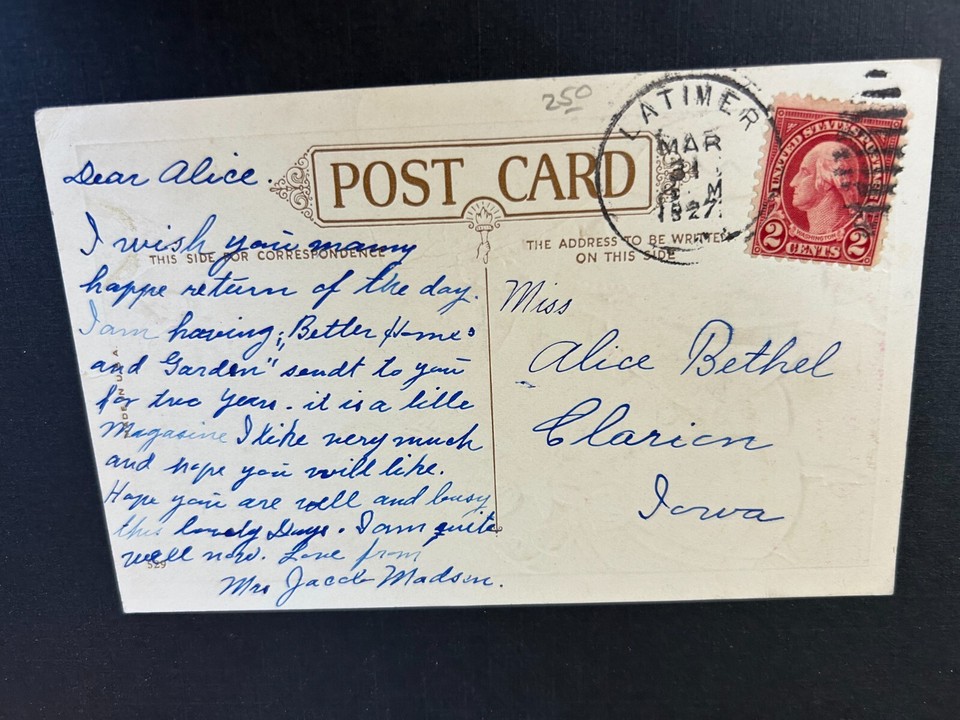 250
LATIMER
MAR
31
M
1927
UNITED STATES POSTAGE
WASHINGTON
2 CENTS 2
POST CARD
THIS SIDE FOR CORRESPONDENCE
THE ADDRESS TO BE WRITTEN
ON THIS SIDE
Dear Alice.
I wish you many
happe return of the day.
I am having "Better Homes
and Garden" sendt to you
for two Years. it is a litle
Magasine I like very much
and hope you will like.
Hope you are well and busy
this lovely Days. I am quite
well now. Love from
Mrs Jacob Madsen.
Miss
Alice Bethel
Clarion
Iowa
MADE IN U.S.A.
529